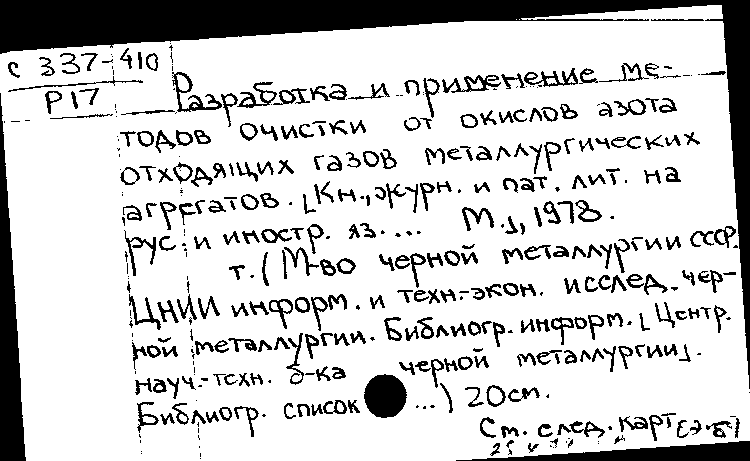 С 337-410
Р17
Разработка и применение ме-
тодов очистки от окислов азота
отходящих газов металлургических
агрегатов. [Кн., журн. и пат. лит. на
рус. и иностр. яз.... М.], 1978.
т. (М-во черной металлургии СССР.
ЦНИИ информ. и техн.-экон. исслед. чер-
ной металлургии. Библиогр. информ. [Центр.
науч.-техн. б-ка черной металлургии].
Библиогр. список ...) 20см.
См. след. карт [2-б]